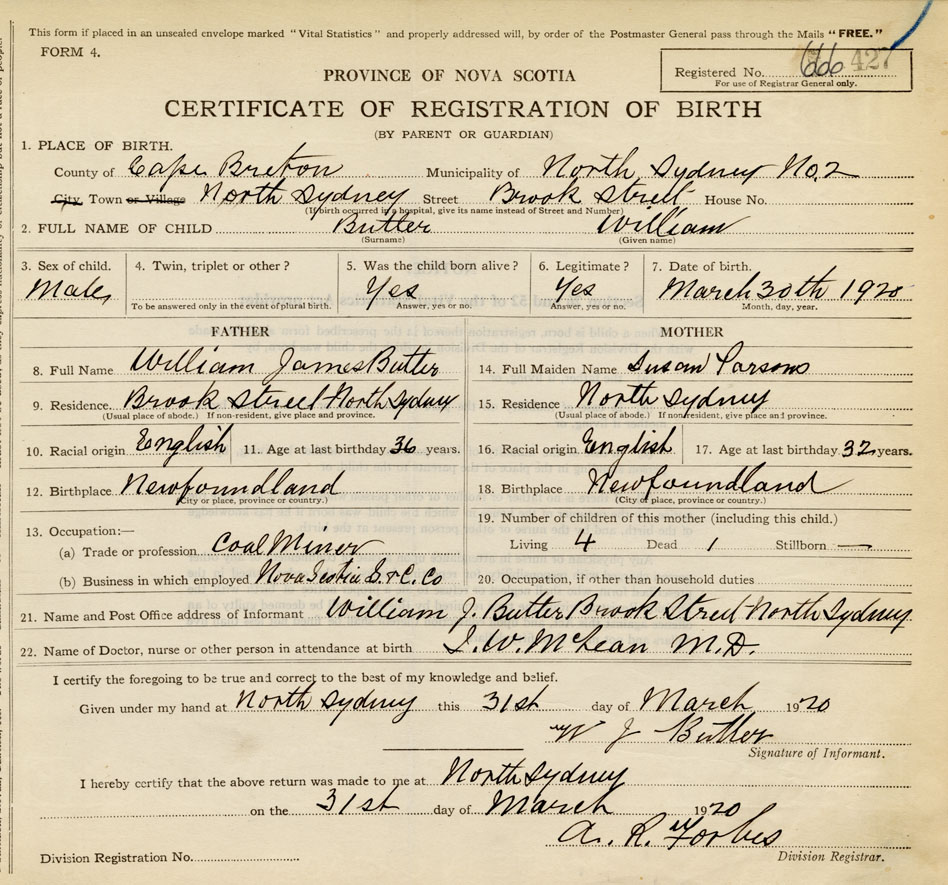 This form if placed in an unsealed envelope marked "Vital Statistics" and properly addressed will, by order of the Postmaster General pass through the Mails "FREE."
FORM 4.
PROVINCE OF NOVA SCOTIA
Registered No. 666 427
For use of Registrar General only.
CERTIFICATE OF REGISTRATION OF BIRTH
(BY PARENT OR GUARDIAN)
1. PLACE OF BIRTH.
County of Cape Breton Municipality of North Sydney No. 2
City, Town or Village North Sydney Street Brook Street House No.
(If birth occurred in a hospital, give its name instead of Street and Number)
2. FULL NAME OF CHILD Butler William
(Surname) (Given name)
3. Sex of child. 4. Twin, triplet or other? 5. Was the child born alive? 6. Legitimate? 7. Date of birth.
Male Yes Yes March 30th 1920
To be answered only in the event of plural birth. Answer, yes or no. Answer, yes or no. Month, day, year.
FATHER MOTHER
8. Full Name William James Butler 14. Full Maiden Name Susan Parsons
9. Residence. Brook Street North Sydney 15. Residence North Sydney
(Usual place of abode.) If non-resident, give place and province. (Usual place of abode.) If non-resident, give place and province.
10. Racial origin English 11. Age at last birthday 36 years. 16. Racial origin English 17. Age at last birthday 32 years.
12. Birthplace Newfoundland 18. Birthplace Newfoundland
(City or place, province or country.) (City or place, province or country.)
13. Occupation:— 19. Number of children of this mother (including this child.)
(a) Trade or profession Coal Miner Living 4 Dead 1 Stillborn —
(b) Business in which employed Nova Scotia S. & C. Co 20. Occupation, if other than household duties
21. Name and Post Office address of Informant William J. Butler Brook Street North Sydney.
22. Name of Doctor, nurse or other person in attendance at birth McLean M.D.
I certify the foregoing to be true and correct to the best of my knowledge and belief.
Given under my hand at North Sydney this 31st day of March 1920
W J Butler
Signature of Informant.
I hereby certify that the above return was made to me at North Sydney
on the 31st day of March 1920
A. R. Forbes
Division Registration No. Division Registrar.